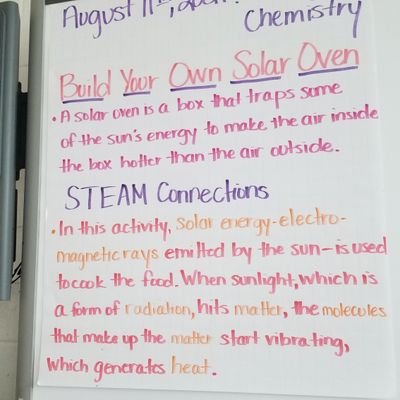 August 11th,
Chemistry
Build Your Own Solar Oven
• A solar oven is a box that traps some
of the sun's energy to make the air inside
the box hotter than the air outside.
STEAM Connections
• In this activity, solar energy-electro-
magnetic rays emitted by the sun-is used
to cook the food. When sunlight, which is
a form of radiation, hits matter, the molecules
that make up the matter start vibrating,
which generates heat.